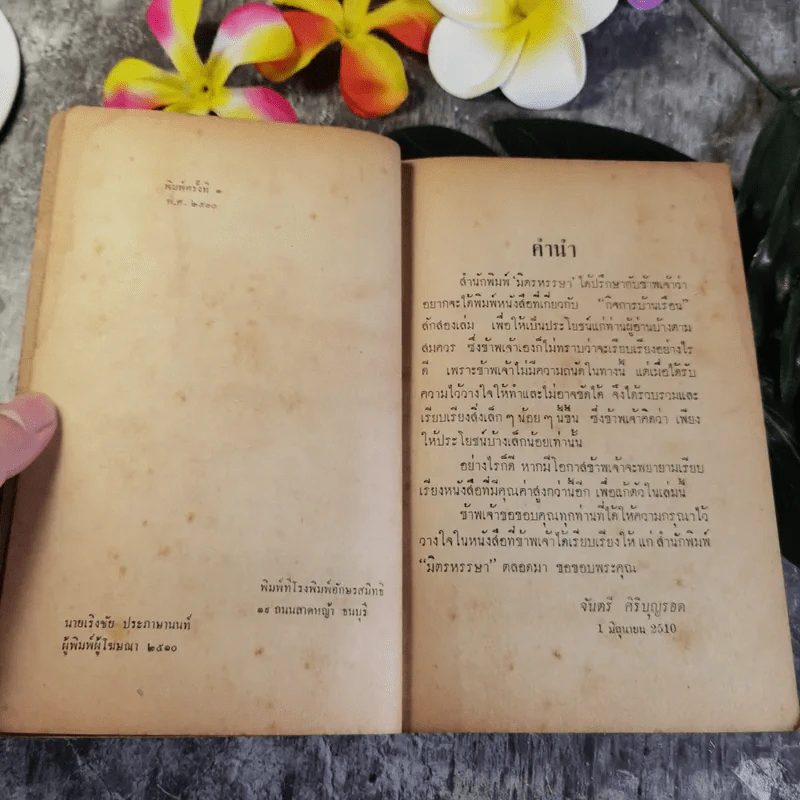 พิมพ์ครั้งที่ ๑
พ.ศ. ๒๕๑๐
พิมพ์ที่โรงพิมพ์อักษรสมิทธิ
๑๙ ถนนลาดหญ้า ธนบุรี
นายเริงชัย ประภาษานนท์
ผู้พิมพ์ผู้โฆษณา ๒๕๑๐
คำนำ
สำนักพิมพ์ ‘มิตรหรรษา’ ได้ปรึกษากับข้าพเจ้าว่า
อยากจะได้พิมพ์หนังสือที่เกี่ยวกับ “กิจการบ้านเรือน”
สักสองเล่ม เพื่อให้เป็นประโยชน์แก่ท่านผู้อ่านบ้างตาม
สมควร ซึ่งข้าพเจ้าเองก็ไม่ทราบว่าจะเรียบเรียงอย่างไร
ดี เพราะข้าพเจ้าไม่มีความถนัดในทางนี้ แต่เมื่อได้รับ
ความไว้วางใจให้ทำและไม่อาจขัดได้ จึงได้รวบรวมและ
เรียบเรียงสิ่งเล็ก ๆ น้อย ๆ นี้ขึ้น ซึ่งข้าพเจ้าคิดว่า เพียง
ให้ประโยชน์บ้างเล็กน้อยเท่านั้น
อย่างไรก็ดี หากมีโอกาสข้าพเจ้าจะพยายามเรียบ
เรียงหนังสือที่มีคุณค่าสูงกว่านี้อีก เพื่อแก้ตัวในเล่มนี้
ข้าพเจ้าขอขอบคุณทุกท่านที่ได้ให้ความกรุณาไว้
วางใจในหนังสือที่ข้าพเจ้าได้เรียบเรียงให้ แก่ สำนักพิมพ์
“มิตรหรรษา” ตลอดมา ขอขอบพระคุณ
จันตรี ศิริบุญรอด
1 มิถุนายน 2510